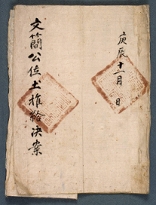 庚辰十一月 日
文簡公位土推給決案